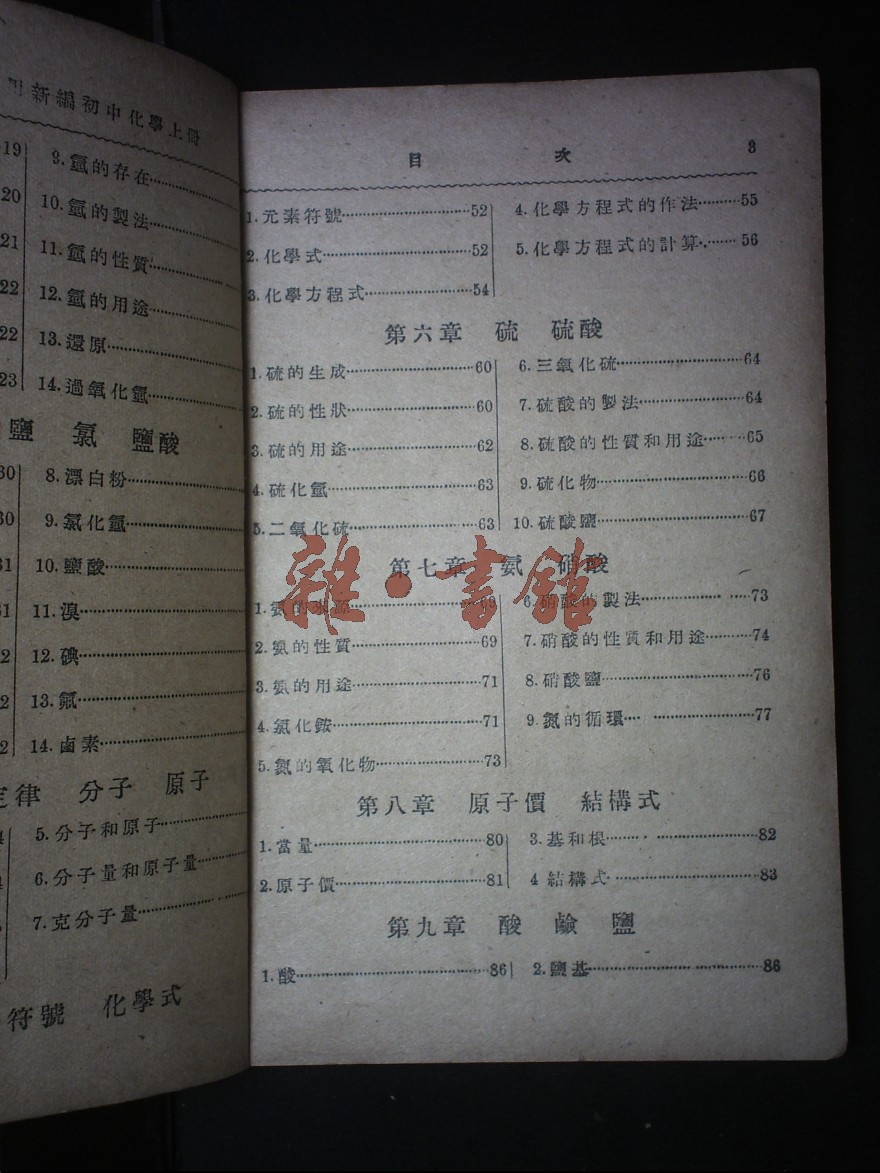 新編初中化學上冊
19
9.氫的存在
20
10.氫的製法
21
11.氫的性質
22
12.氫的用途
22
13.還原
23
14.過氧化氫
鹽 氯 鹽酸
30
8.漂白粉
30
9.氯化氫
31
10.鹽酸
31
11.溴
2
12.碘
2
13.氟
2
14.鹵素
定律 分子 原子
4
5.分子和原子
6.分子量和原子量
7.克分子量
符號 化學式
目 次 3
1.元素符號………52
2.化學式………52
3.化學方程式………54
4.化學方程式的作法………55
5.化學方程式的計算………56
第六章 硫 硫酸
1.硫的生成………60
2.硫的性狀………60
3.硫的用途………62
4.硫化氫………63
5.二氧化硫………63
6.三氧化硫………64
7.硫酸的製法………64
8.硫酸的性質和用途………65
9.硫化物………66
10.硫酸鹽………67
第七章 氨 硝酸
1.氨的來源………69
2.氨的性質………69
3.氨的用途………71
4.氯化銨………71
5.氮的氧化物………73
6.硝酸的製法………73
7.硝酸的性質和用途………74
8.硝酸鹽………76
9.氮的循環………77
雜·書館
第八章 原子價 結構式
1.當量………80
2.原子價………81
3.基和根………82
4 結構式………83
第九章 酸 鹼 鹽
1.酸………86
2.鹽基………86